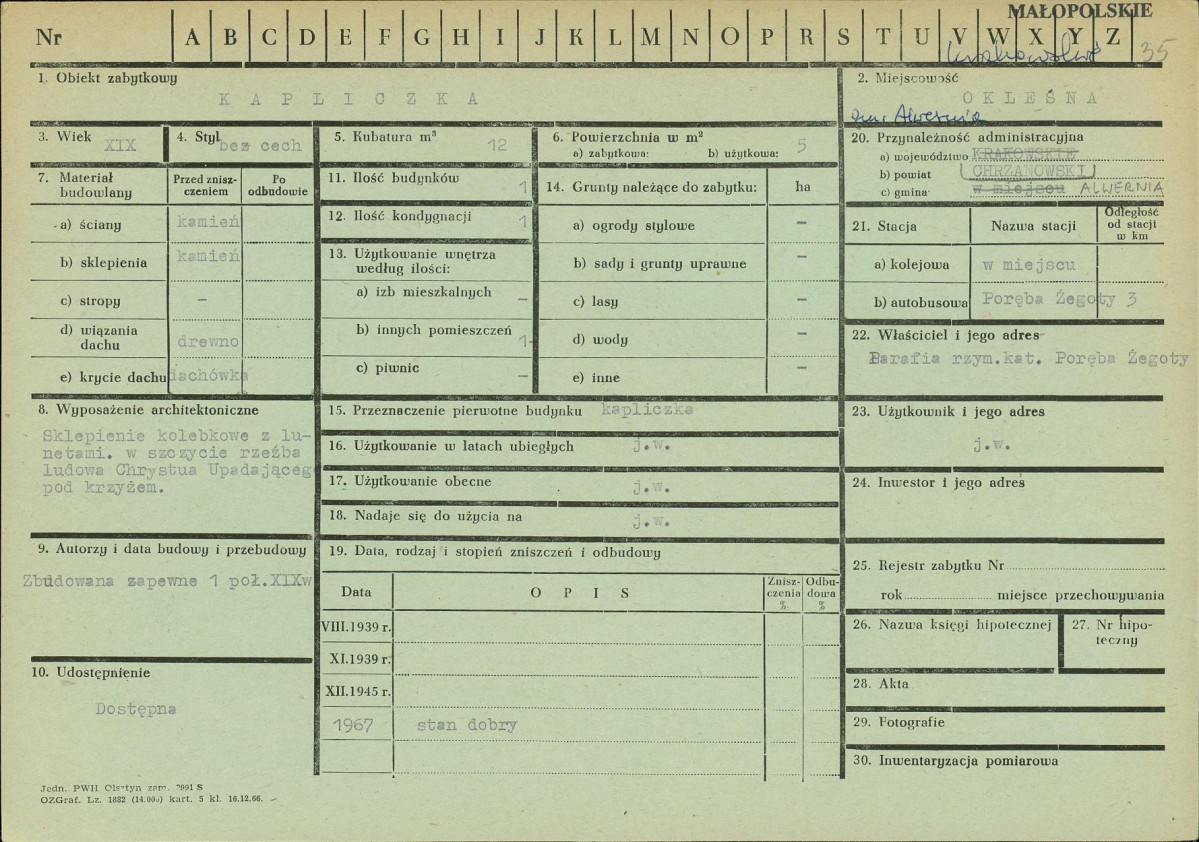 MAŁOPOLSKIE
Nr A B C D E F G H I J K L M N O P R S T U V W X Y Z
35
1. Obiekt zabytkowy
K A P L I C Z K A
2. Miejscowość
OKLEŚNA
gm. Alwernia
3. Wiek XIX
4. Styl bez cech
5. Kubatura m³ 12
6. Powierzchnia w m²
a) zabytkowa: b) użytkowa: 5
20. Przynależność administracyjna
a) województwo KRAKOWSKIE
b) powiat CHRZANOWSKI
c) gmina w miejscu ALWERNIA
7. Materiał budowlany
Przed zniszczeniem
Po odbudowie
a) ściany kamień
b) sklepienia kamień
c) stropy –
d) wiązania dachu drewno
e) krycie dachu dachówka
11. Ilość budynków 1
12. Ilość kondygnacji 1
13. Użytkowanie wnętrza
według ilości:
a) izb mieszkalnych –
b) innych pomieszczeń 1
c) piwnic –
14. Grunty należące do zabytku: ha
a) ogrody stylowe –
b) sady i grunty uprawne –
c) lasy –
d) wody –
e) inne –
21. Stacja
Nazwa stacji
Odległość
od stacji
w km
a) kolejowa w miejscu
b) autobusowa Poręba Żegoty 3
22. Właściciel i jego adres
Parafia rzym.kat. Poręba Żegoty
8. Wyposażenie architektoniczne
Sklepienie kolebkowe z lu-
netami. w szczycie rzeźba
ludowa Chrystua Upadająceg
pod krzyżem.
15. Przeznaczenie pierwotne budynku kapliczka
16. Użytkowanie w latach ubiegłych j.w.
17. Użytkowanie obecne j.w.
18. Nadaje się do użycia na j.w.
23. Użytkownik i jego adres
j.w.
24. Inwestor i jego adres
9. Autorzy i data budowy i przebudowy
Zbudowana zapewne 1 poł.XIXw
19. Data, rodzaj i stopień zniszczeń i odbudowy
Data
O P I S
Znisz-
czenia
%
Odbu-
dowa
%
VIII.1939 r.
XI.1939 r.
XII.1945 r.
1967 stan dobry
25. Rejestr zabytku Nr
rok miejsce przechowywania
26. Nazwa księgi hipotecznej
27. Nr hipo-
teczny
10. Udostępnienie
Dostępna
28. Akta
29. Fotografie
30. Inwentaryzacja pomiarowa
Jedn. PWH Olsztyn zam. 2991 S
OZGraf. Lz. 1882 (14.000) kart. 5 kl. 16.12.66.